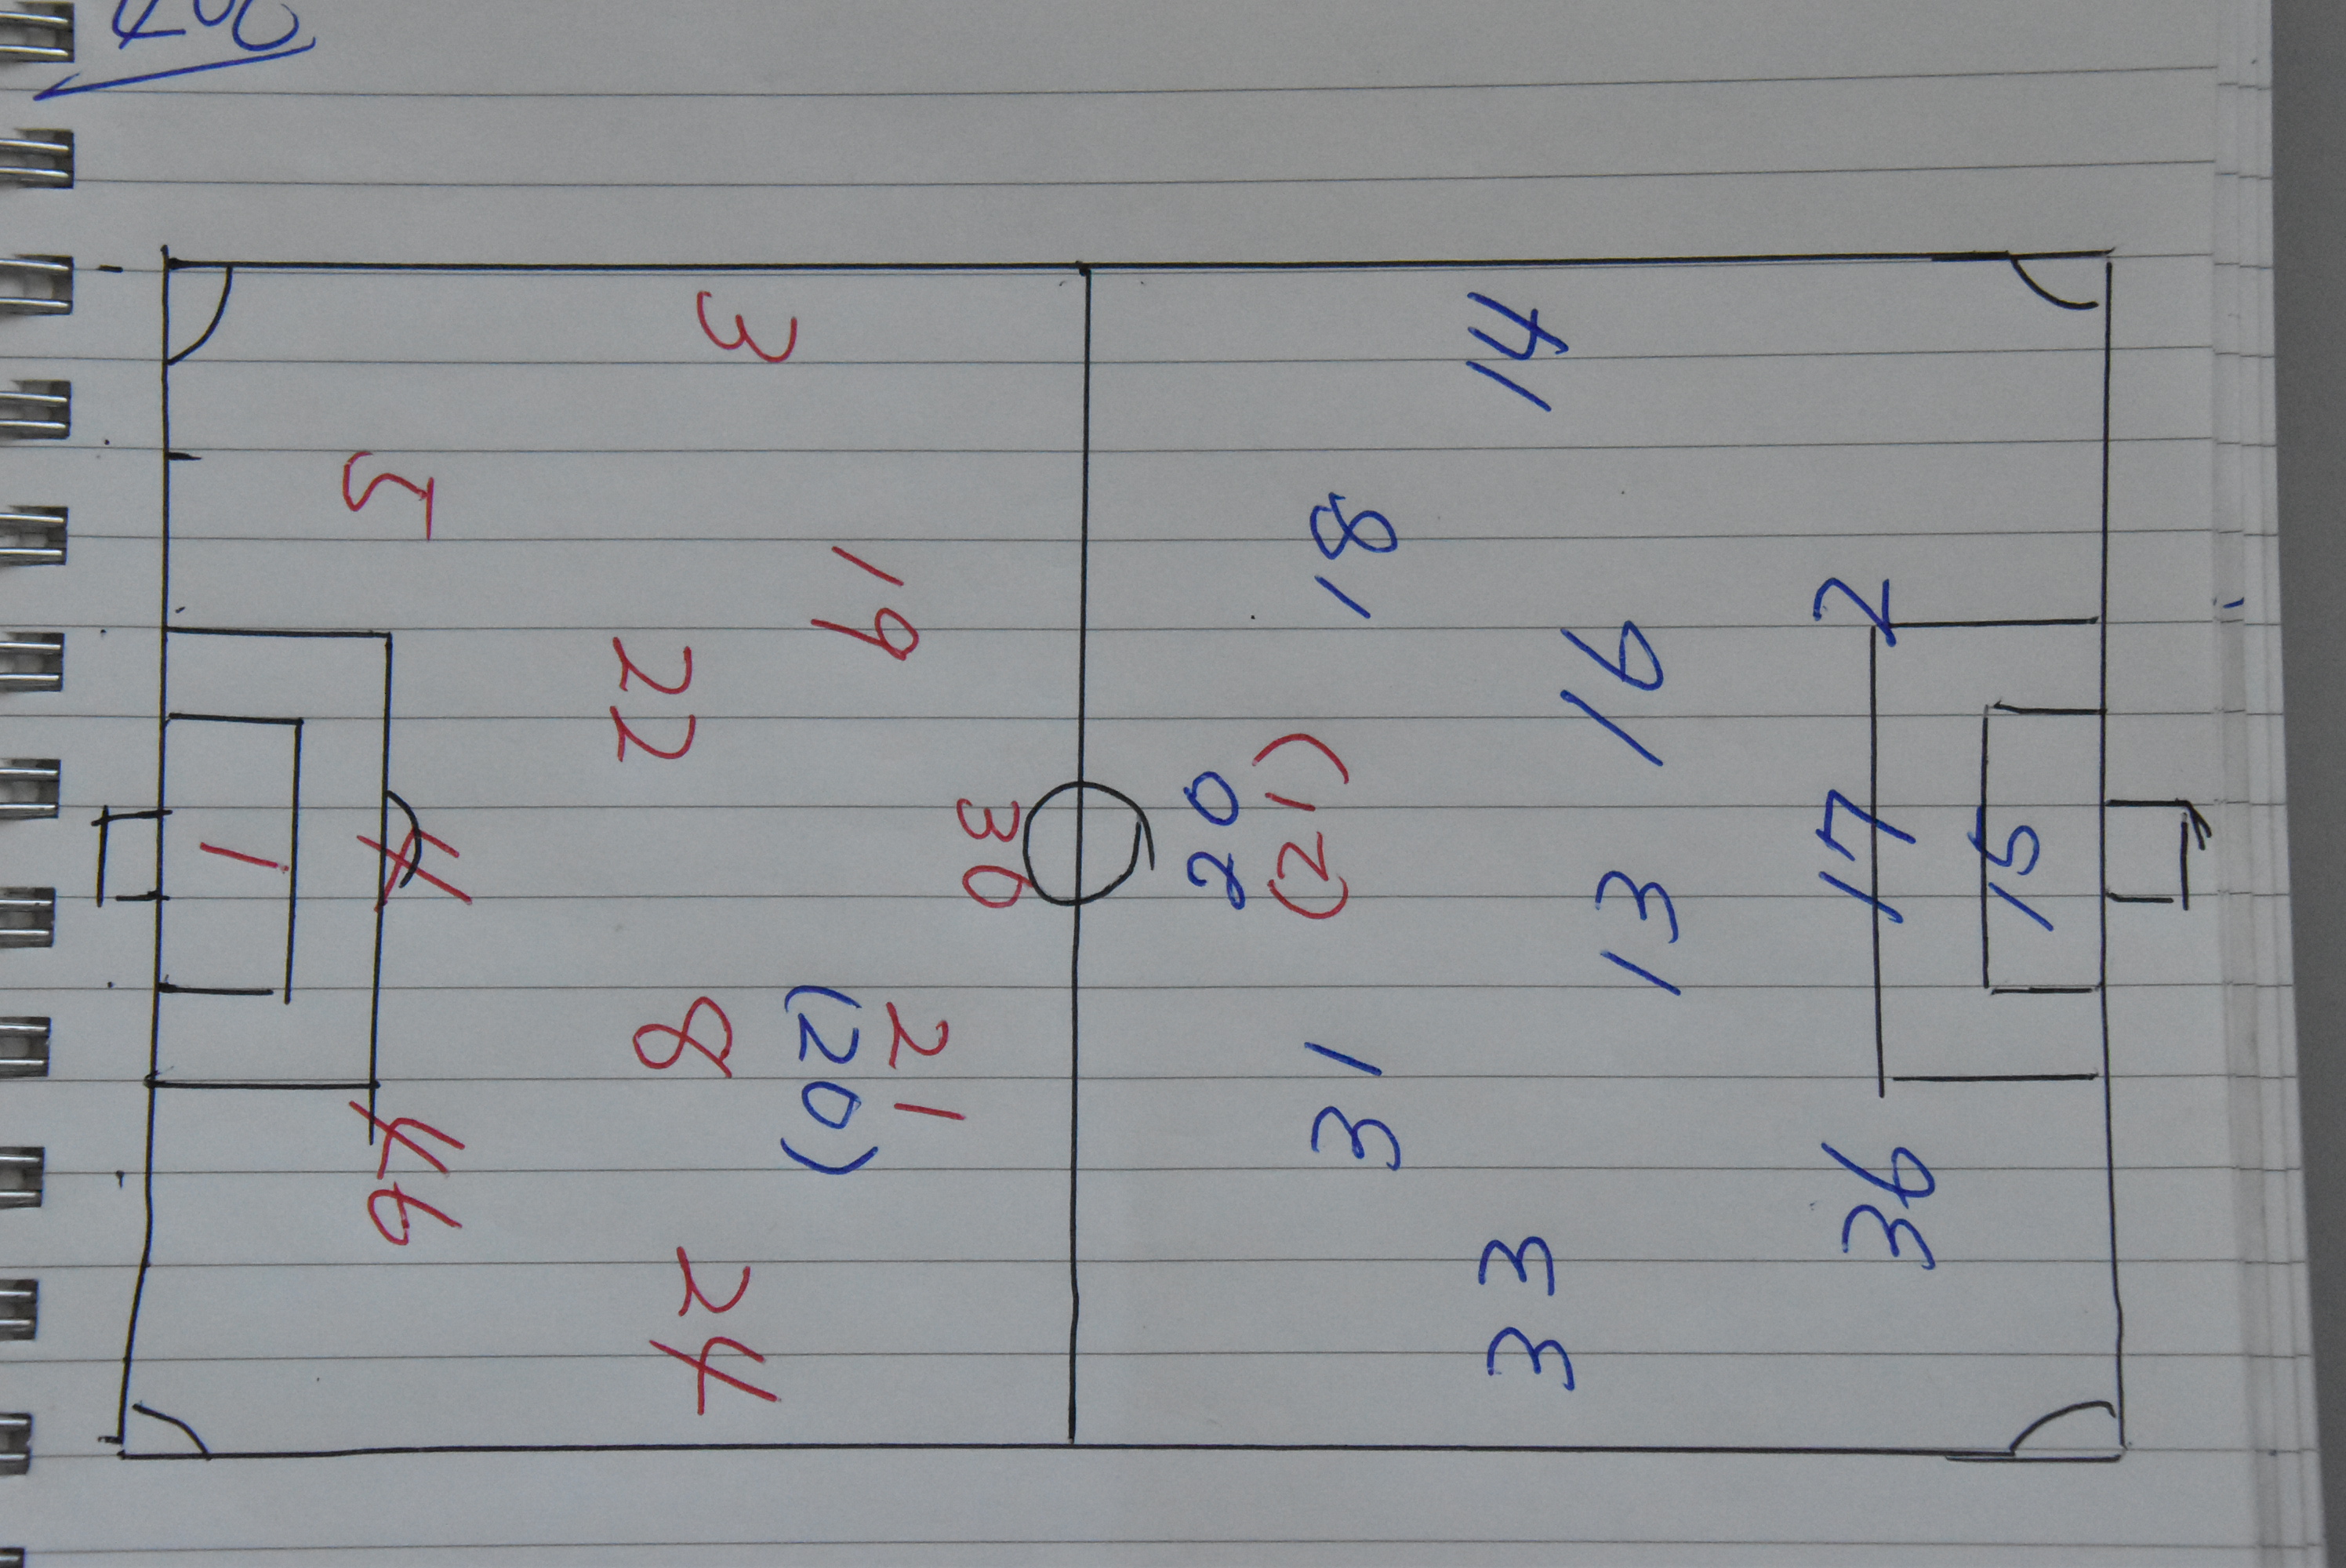 3
5
19
22
1
4
30
8
21
(20)
46
24
14
18
16
2
20
(21)
13
17
15
31
36
33